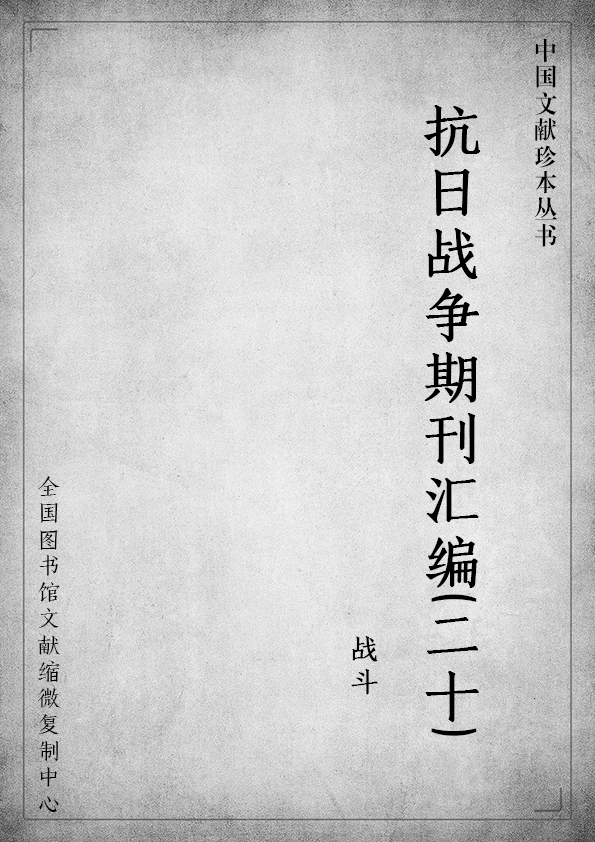 中国文献珍本丛书
抗日战争期刊汇编(二十)
战斗
全国图书馆文献缩微复制中心